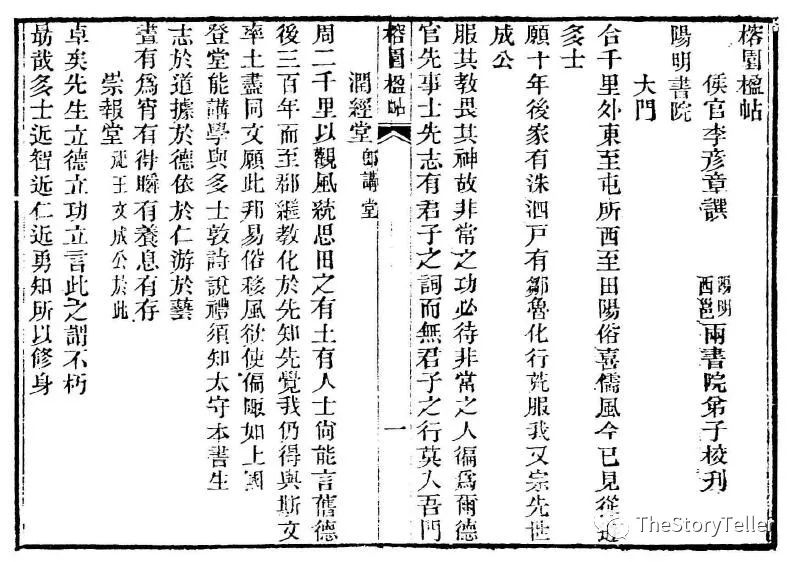 榕園楹帖
侯官李彥章譔 陽明西邕兩書院弟子校刋
陽明書院
大門
合千里外東至屯所西至田陽俗喜儒風今已見從遊
多士
願十年後家有洙泗戸有鄒魯化行荒服我又宗先世
成公
服其教畏其神故非常之功必待非常之人徧爲爾德
官先事士先志有君子之詞而無君子之行莫入吾門
榕園楹帖 一
潤經堂 卽講堂
周二千里以觀風統思田之有土有人士尙能言舊德
後三百年而至郡繼教化於先知先覺我仍得與斯文
率土盡同文願此邦易俗移風欲使偏陬如上國
登堂能講學與多士敦詩說禮須知太守本書生
志於道據於德依於仁游於藝
晝有爲宵有得瞬有養息有存
崇報堂 祀王文成公於此
卓矣先生立德立功立言此之謂不朽
勗哉多士近智近仁近勇知所以修身
TheStoryTeller